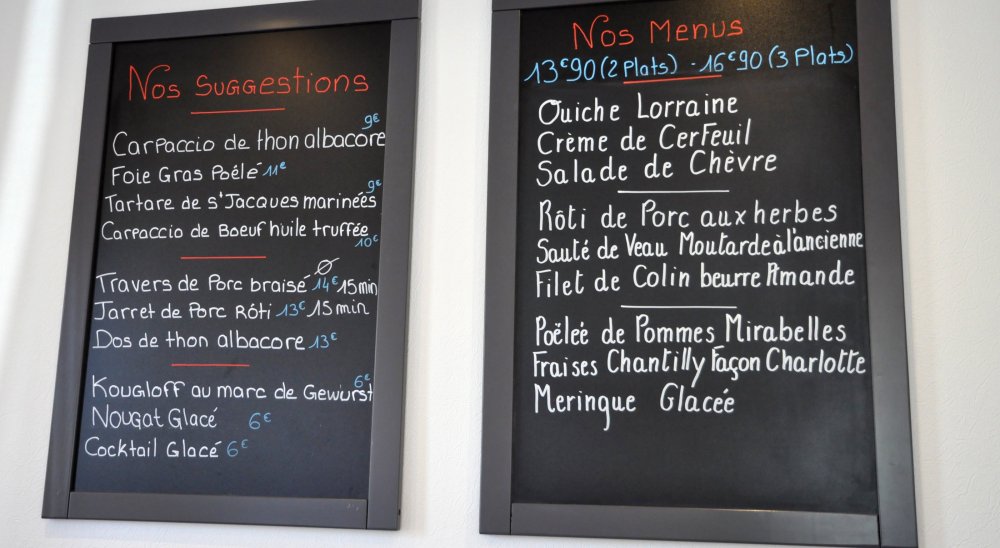 Nos Suggestions
Carpaccio de thon albacore 9€
Foie Gras Poêlé 11€
Tartare de St Jacques marinées 9€
Carpaccio de Boeuf huile truffée 10€
Travers de Porc braisé 14€ 15min
Jarret de Porc Rôti 13€ 15min
Dos de thon albacore 13€
Kougloff au marc de Gewürst 6€
Nougat Glacé 6€
Cocktail Glacé 6€
Nos Menus
13€90 (2 Plats) - 16€90 (3 Plats)
Quiche Lorraine
Crème de Cerfeuil
Salade de Chèvre
Rôti de Porc aux herbes
Sauté de Veau Moutarde à l'ancienne
Filet de Colin beurre Amande
Poëleé de Pommes Mirabelles
Fraises Chantilly Façon Charlotte
Meringue Glaceé